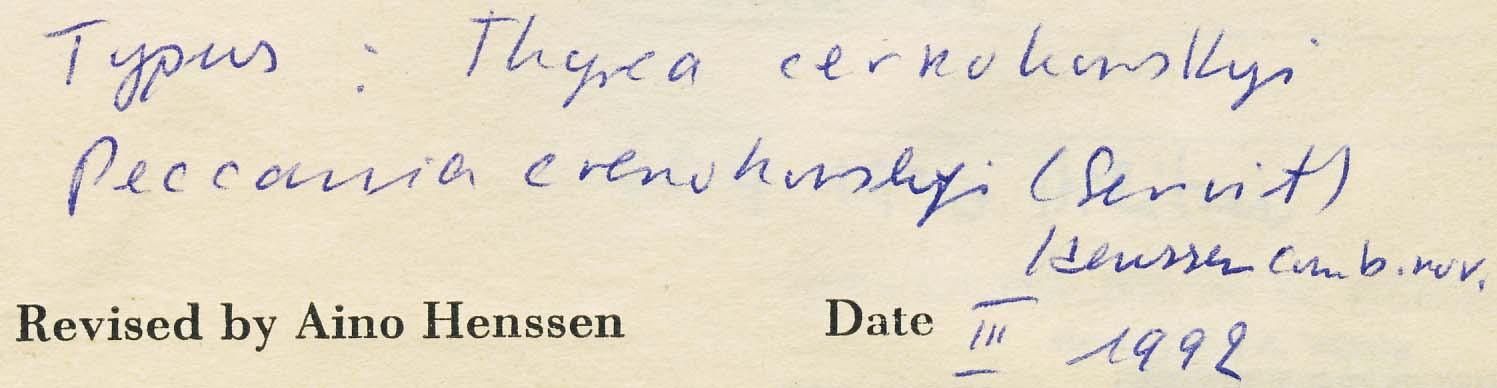 Typus : Thyrea cernohorskyi
Peccania cernohorskyi (Servit)
Henssen comb. nov.
Revised by Aino Henssen Date III 1992